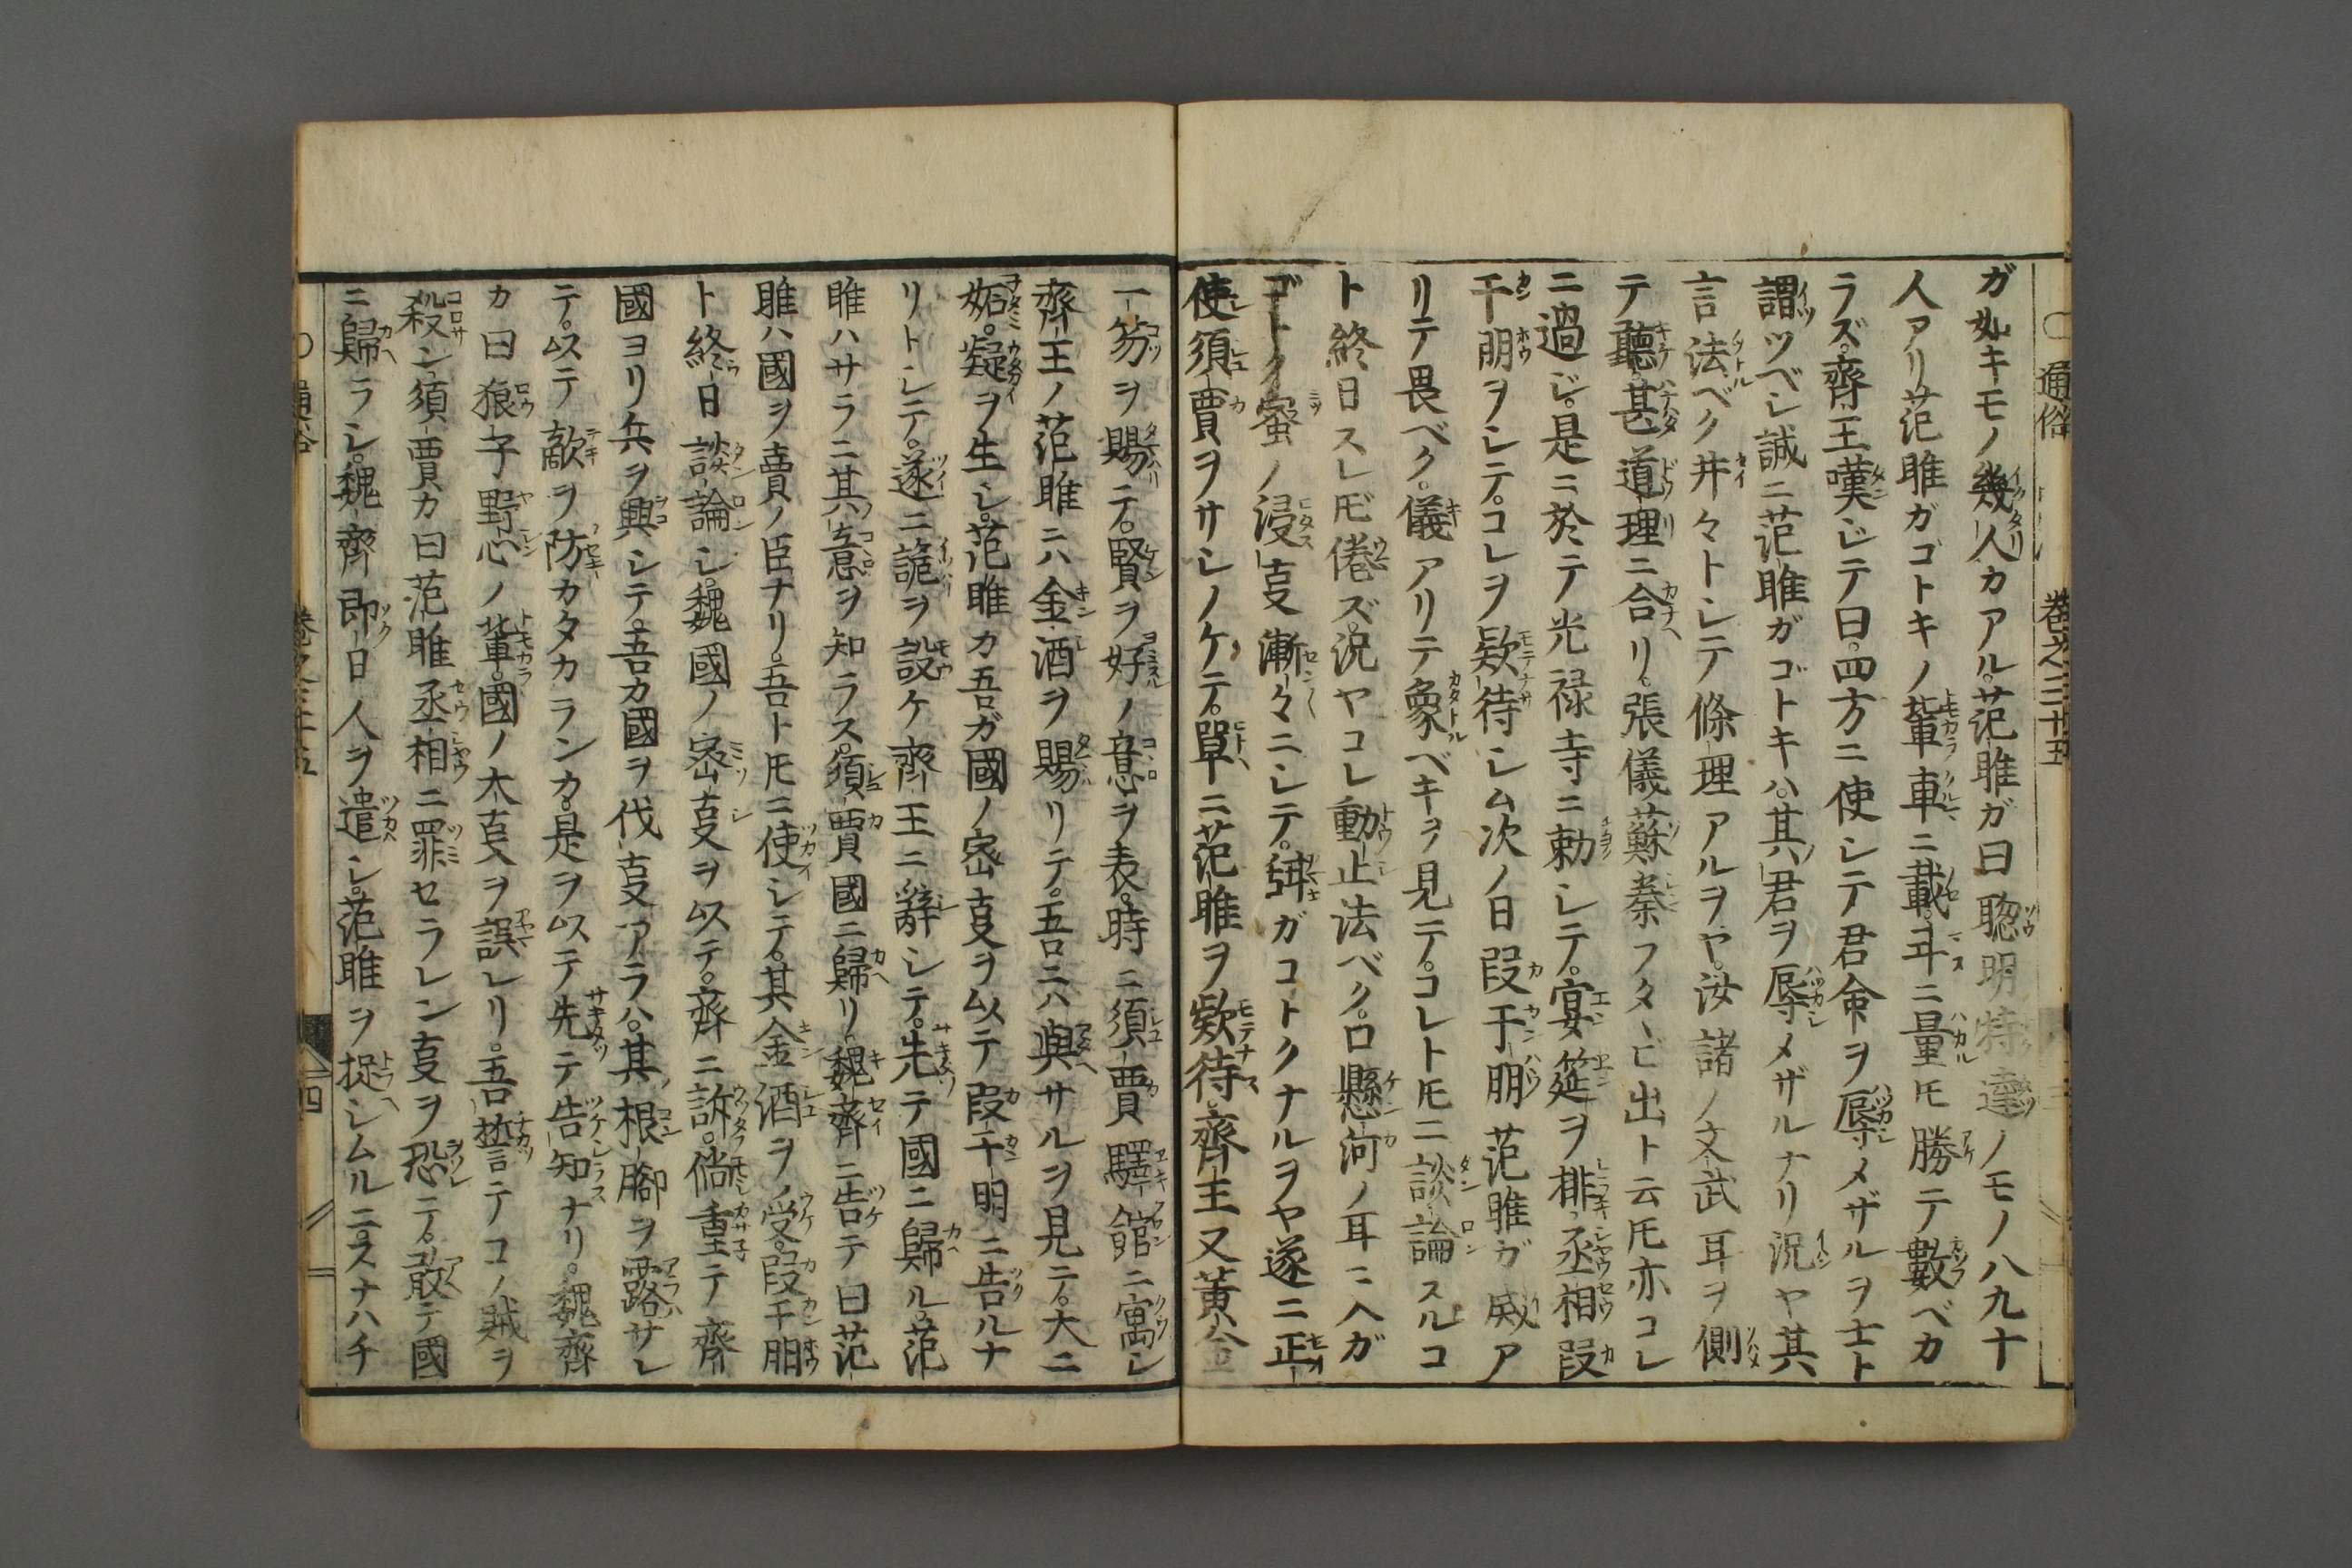 通俗 巻之三十五
ガ如キモノ幾人カアル。范雎ガ曰聡明特達ノモノ八九十
人アリ范雎ガゴトキノ輩車ニ載斗ニ量圧勝テ數ベカ
ラズ。齊王嘆ジテ曰。四方ニ使シテ君命ヲ辱メザルヲ士ト
謂ツベシ誠ニ范雎ガゴトキハ。其君ヲ辱メザルナリ況ヤ其
言法ベク井々トシテ條理アルヲヤ。汝諸ノ文武耳ヲ側
テ聽。甚道理ニ合リ。張儀蘇秦フタヽビ出ト云𪜈亦コレ
ニ過ジ。是ニ於テ光禄寺ニ勅シテ。宴筵ヲ排。丞相叚
干朋ヲシテ。コレヲ欵待シム次ノ日叚干朋范雎ガ威ア
リテ畏ベク。儀アリテ象ベキヲ見テ。コレト𪜈ニ談論スルコ
ト終日スレ𪜈倦ズ。況ヤコレ動止法ベク。口懸河ノ耳ニ入ガ
ゴトク蜜ノ浸㕝漸々ニシテ。弭ガコトクナルヲヤ遂ニ正
使須賈ヲサシノケテ。單ニ范雎ヲ欵待。齊王又黄金
一笏ヲ賜テ。賢ヲ好ノ意ヲ表。時ニ須賈驛館ニ寓シ
齊王ノ范雎ニハ金酒ヲ賜リテ。吾ニハ與サルヲ見テ。大ニ
妬。疑ヲ生シ。范雎カ吾ガ國ノ宻㕝ヲ以テ叚干明ニ告ルナ
リトシテ。遂ニ詭ヲ設ケ齊王ニ辭シテ。先テ國ニ歸ル。范
雎ハサラニ其意ヲ知ラス。須賈國ニ歸リ魏齊ニ告テ曰范
雎ハ國ヲ賣ノ臣ナリ。吾ト𪜈ニ使シテ。其金酒ヲ受。叚干朋
ト終日談論シ。魏國ノ宻㕝ヲ以テ。齊ニ訴。倘重テ齊
國ヨリ兵ヲ興シテ。吾カ國ヲ伐㕝アラハ。其根脚ヲ露サレ
テ。以テ敵ヲ防カタカランカ。是ヲ以テ先テ告知ナリ。魏齊
カ曰狼子野心ノ輩。國ノ大㕝ヲ誤レリ。吾誓テコノ賊ヲ
殺ン須賈カ曰范雎丞相ニ罪セラレン㕝ヲ恐テ。敢テ國
ニ歸ラシ。魏齊即日人ヲ遣シ。范雎ヲ捉シムルニ。スナハチ
四